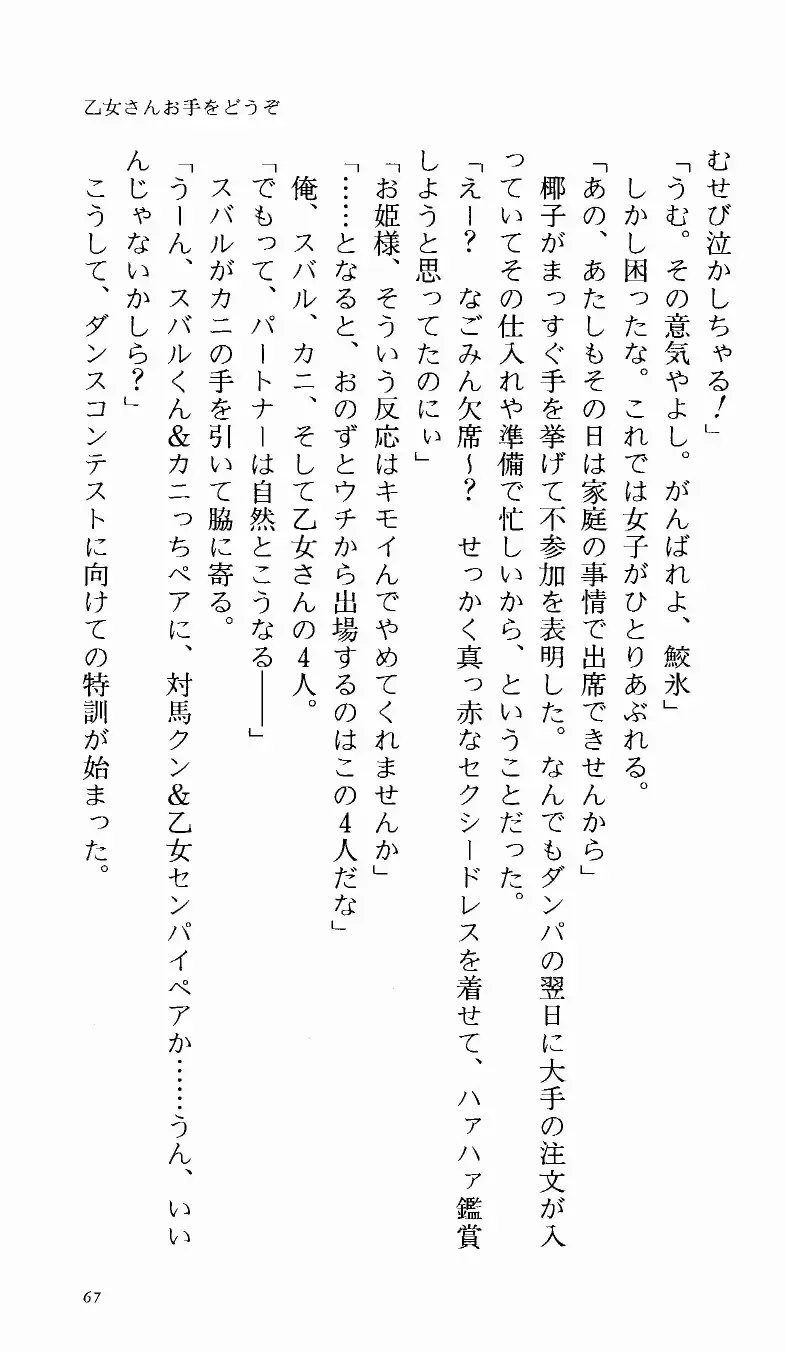 乙女さんお手をどうぞ
むせび泣かしちゃる！」
「うむ。その意気やよし。がんばれよ、鮫氷」
しかし困ったな。これでは女子がひとりあぶれる。
「あの、あたしもその日は家庭の事情で出席できせんから」
椰子がまっすぐ手を挙げて不参加を表明した。なんでもダンパの翌日に大手の注文が入
っていてその仕入れや準備で忙しいから、ということだった。
「えー？　なごみん欠席～？　せっかく真っ赤なセクシードレスを着せて、ハァハァ鑑賞
しようと思ってたのにぃ」
「お姫様、そういう反応はキモイんでやめてくれませんか」
「……となると、おのずとウチから出場するのはこの4人だな」
俺、スバル、カニ、そして乙女さんの4人。
「でもって、パートナーは自然とこうなる――」
スバルがカニの手を引いて脇に寄る。
「うーん、スバルくん＆カニっちペアに、対馬クン＆乙女センパイペアか……うん、いい
んじゃないかしら？」
こうして、ダンスコンテストに向けての特訓が始まった。
67